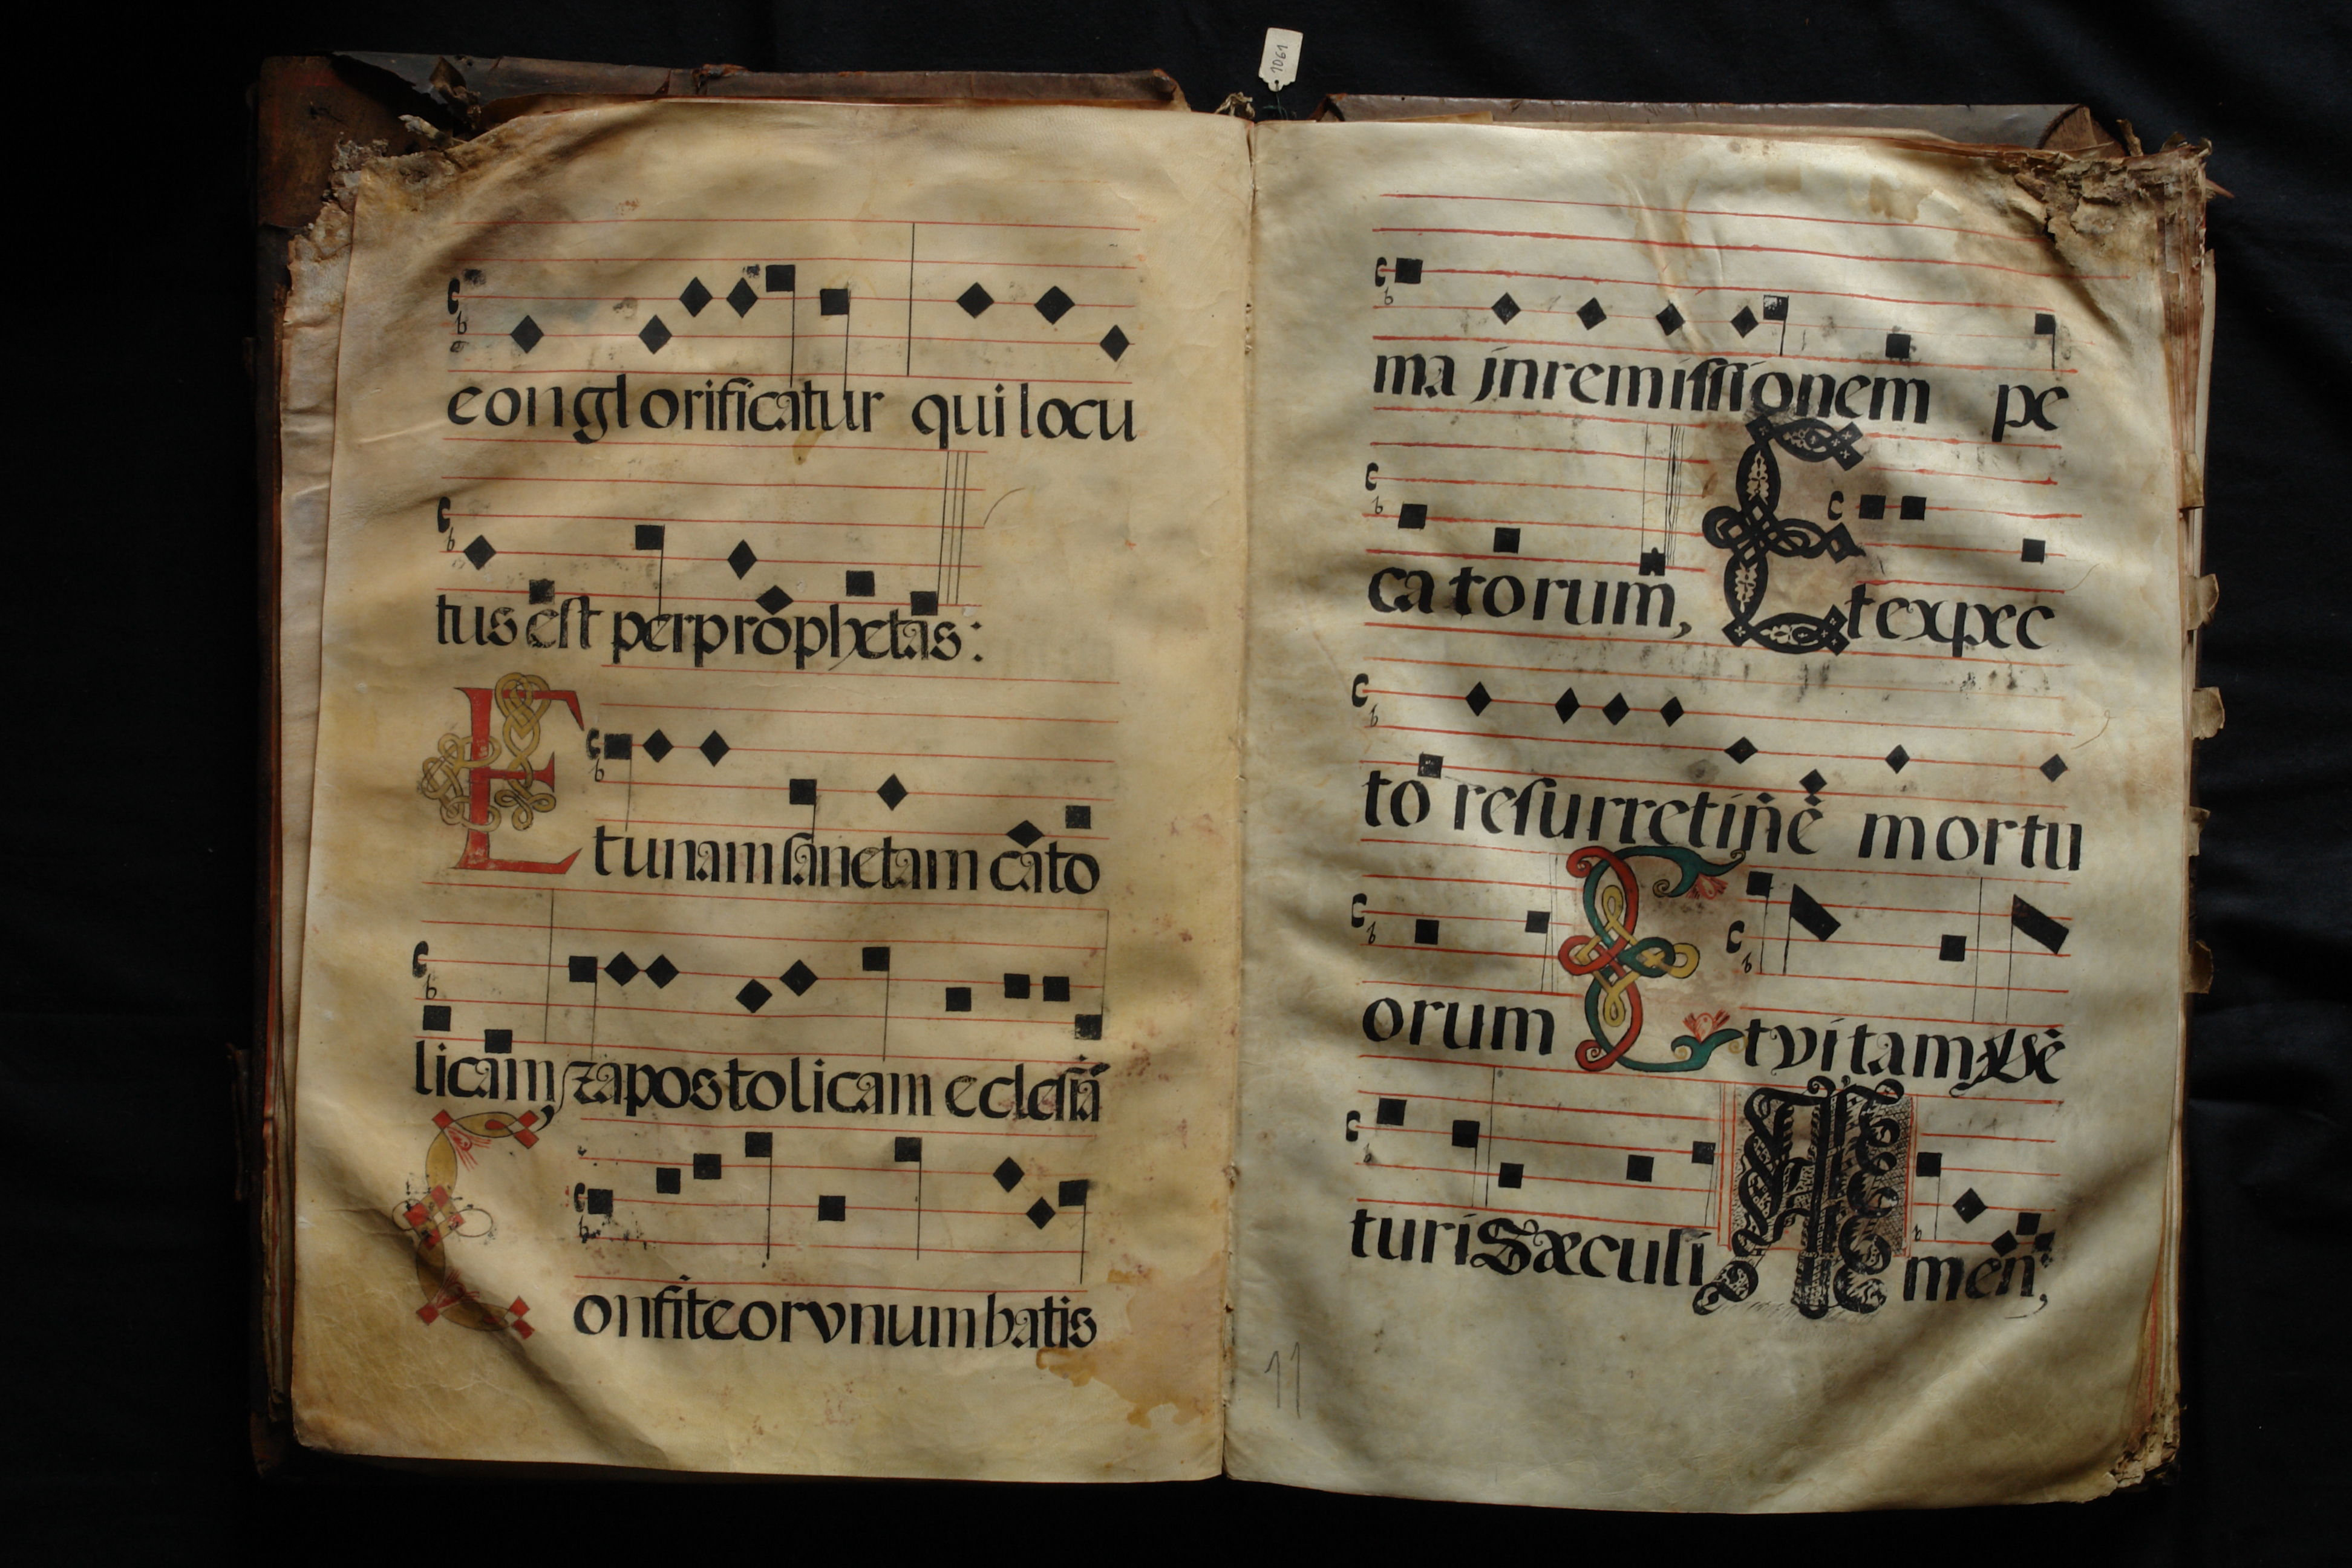 1061
conglorificatur qui locu
tus est per prophetas:
Et unam sanctam cato
licam, & apostolicam eclesiã
Confiteor vnum batis
ma in remissionem pe
catorum, Et expec
to resurretinẽ mortu
orum Et vitam vẽ
turi Sæculi Amen,
11